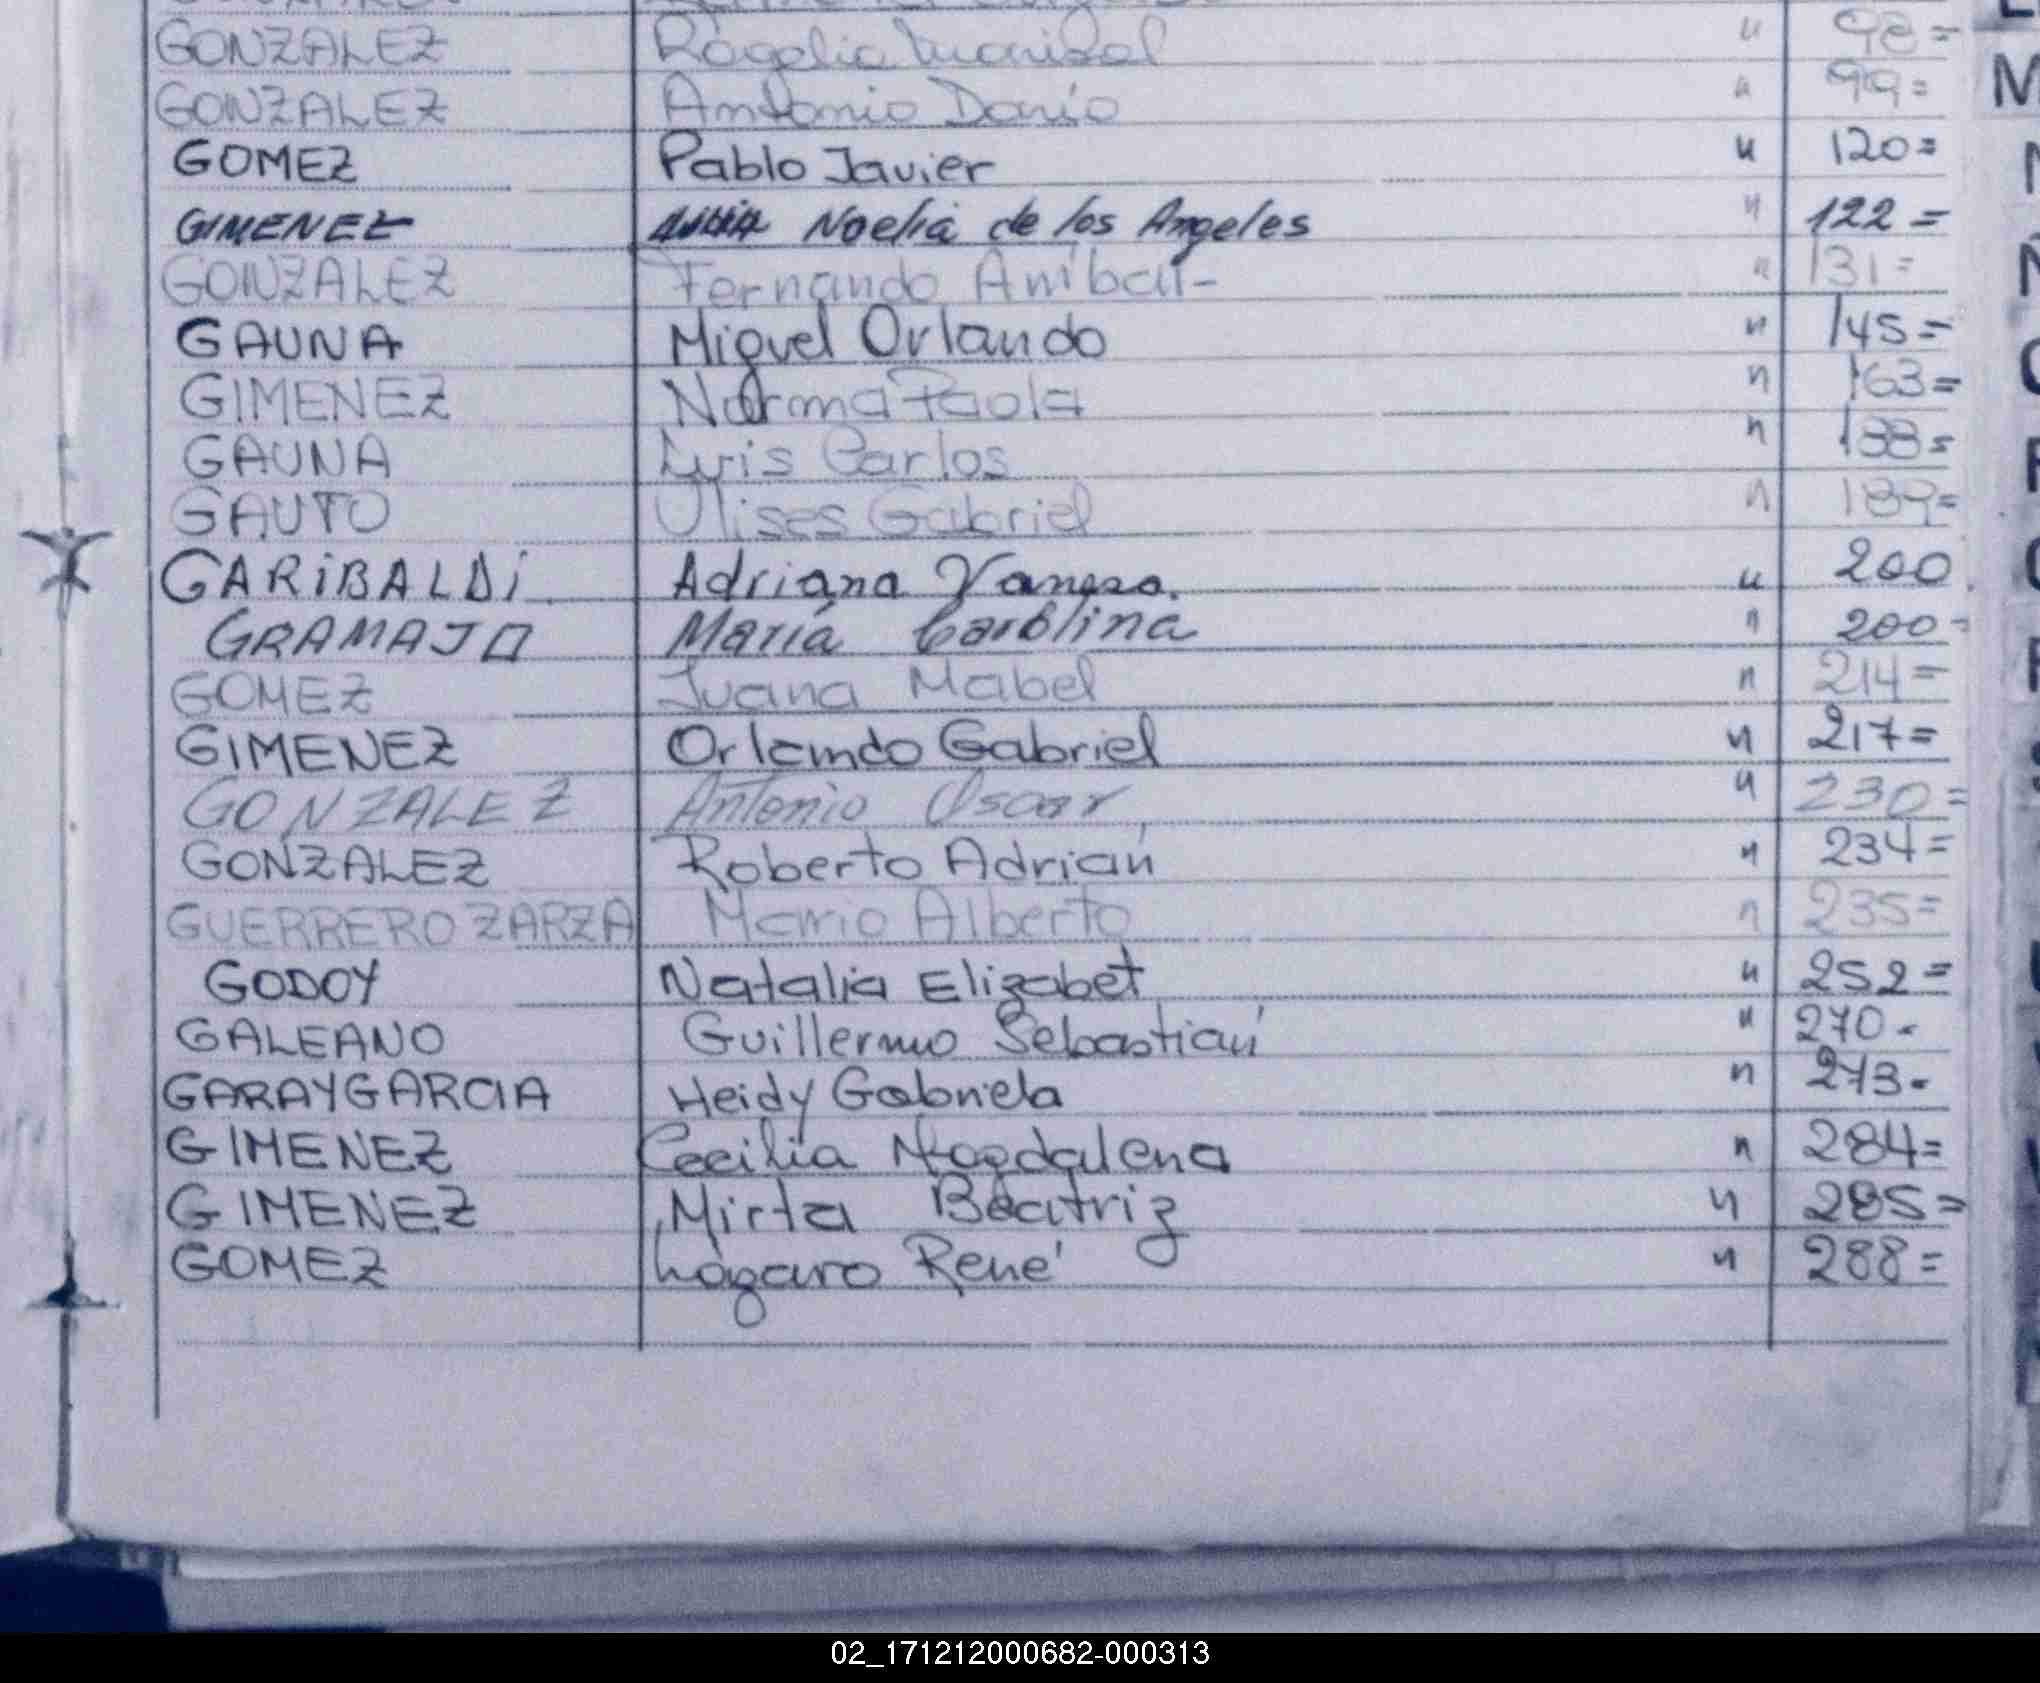 GONZALEZ Rogelia Marisol " 98=
GONZALEZ Antonio Darío " 99=
GOMEZ Pablo Javier " 120=
GIMENEZ Noelia de los Angeles " 122=
GONZALEZ Fernando Aníbal- " 131=
GAUNA Miguel Orlando " 145=
GIMENEZ Norma Paola " 163=
GAUNA Luis Carlos " 188=
GAUTO Ulises Gabriel " 189=
GARiBALDi Adriana Vanesa. " 200
GRAMAJO María Carolina " 200-
GOMEZ Juana Mabel " 214=
GIMENEZ Orlando Gabriel " 217=
GONZALEZ Antonio Oscar " 230=
GONZALEZ Roberto Adrián " 234=
GUERRERO ZARZA Mario Alberto " 235=
GODOY Natalia Elizabet " 252=
GALEANO Guillermo Sebastián " 270-
GARAY GARCIA Heidy Gabriela " 273-
GIMENEZ Cecilia Magdalena " 284=
GIMENEZ Mirta Beatriz " 285=
GOMEZ Lázaro René " 288=
02_171212000682-000313